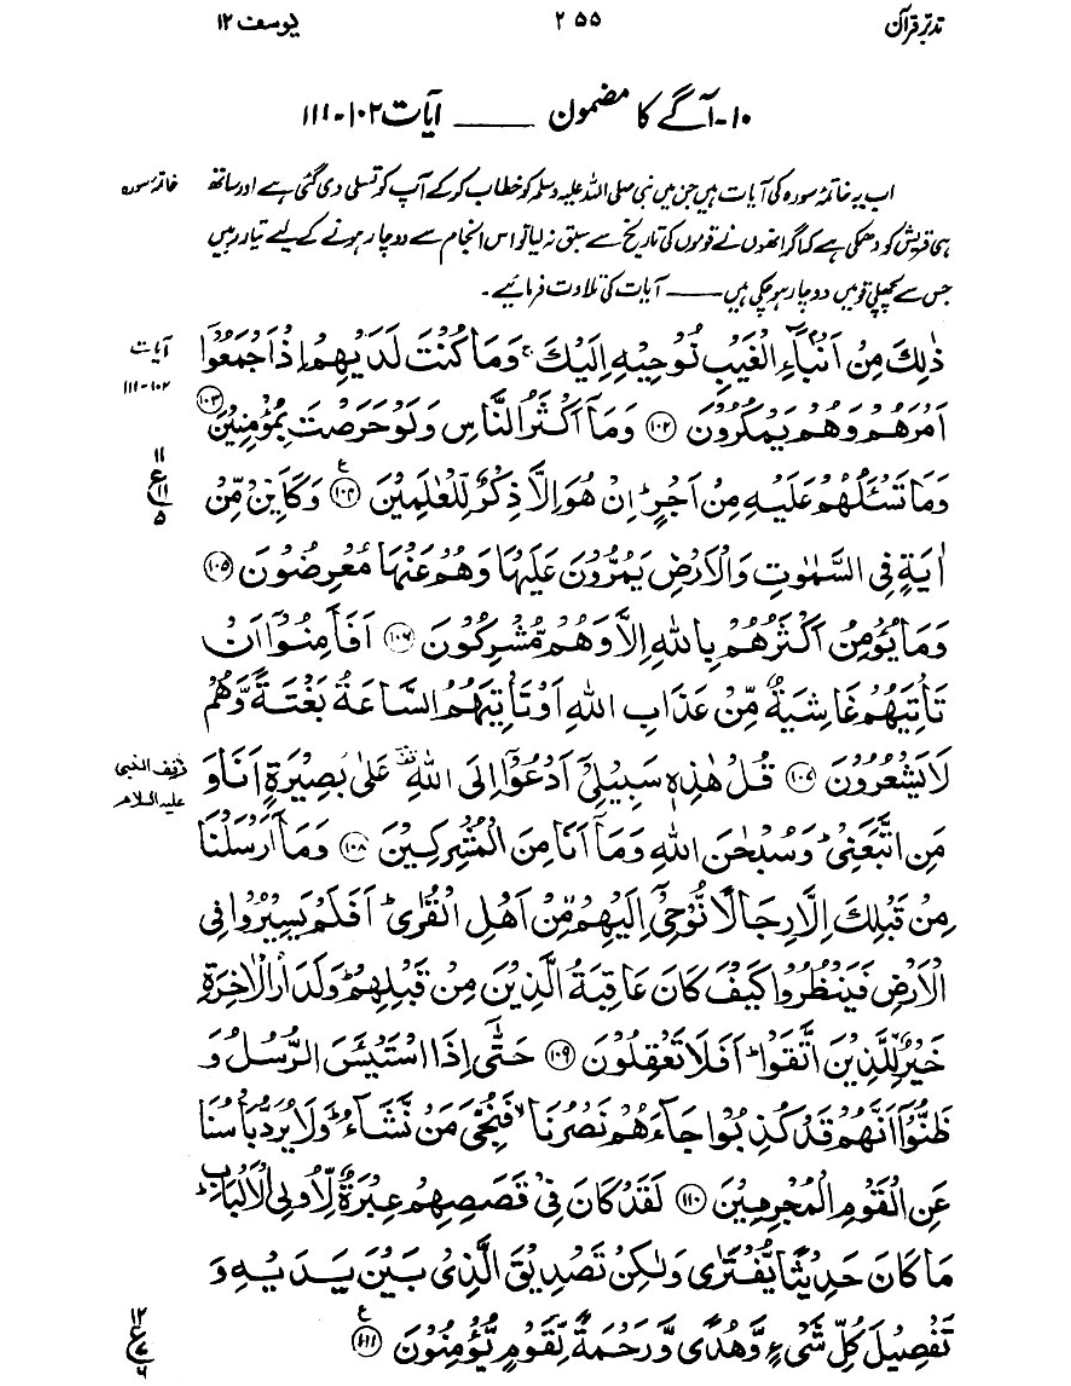 تدبّرِ قرآن ۲۵۵ یوسف ۱۲
۱۰-آگے کا مضمون ــــــ آیات ۱۰۲-۱۱۱
اب یہ خاتمۂ سورہ کی آیات ہیں جن میں نبی صلی اللہ علیہ وسلم کو خطاب کر کے آپ کو تسلی دی گئی ہے اور ساتھ
خاتمۂ سورہ
ہی قریش کو دھمکی ہے کہ اگر انھوں نے قوموں کی تاریخ سے سبق نہ لیا تو اس انجام سے دوچار ہونے کے لیے تیار رہیں
جس سے پچھلی قومیں دوچار ہو چکی ہیں ــــــ آیات کی تلاوت فرمائیے۔
ذٰلِكَ مِنْ اَنْۢبَآءِ الْغَيْبِ نُوْحِيْهِ اِلَيْكَ ۚ وَمَا كُنْتَ لَدَيْهِمْ اِذْ اَجْمَعُوْٓا
آیات
۱۰۲-۱۱۱
اَمْرَهُمْ وَهُمْ يَمْكُرُوْنَ ﴿۱۰۲﴾ وَمَآ اَكْثَرُ النَّاسِ وَلَوْ حَرَصْتَ بِمُؤْمِنِيْنَ ﴿۱۰۳﴾
وَمَا تَسْـَٔلُهُمْ عَلَيْهِ مِنْ اَجْرٍ ؕ اِنْ هُوَ اِلَّا ذِكْرٌ لِّلْعٰلَمِيْنَ ﴿۱۰۴﴾ ع وَكَاَيِّنْ مِّنْ
۱۱
ع ۱۱
۵
اٰيَةٍ فِى السَّمٰوٰتِ وَالْاَرْضِ يَمُرُّوْنَ عَلَيْهَا وَهُمْ عَنْهَا مُعْرِضُوْنَ ﴿۱۰۵﴾
وَمَا يُؤْمِنُ اَكْثَرُهُمْ بِاللهِ اِلَّا وَهُمْ مُّشْرِكُوْنَ ﴿۱۰۶﴾ اَفَاَمِنُوْٓا اَنْ
تَاْتِيَهُمْ غَاشِيَةٌ مِّنْ عَذَابِ اللهِ اَوْ تَاْتِيَهُمُ السَّاعَةُ بَغْتَةً وَّهُمْ
لَا يَشْعُرُوْنَ ﴿۱۰۷﴾ قُلْ هٰذِهٖ سَبِيْلِىْٓ اَدْعُوْٓا اِلَى اللهِ ۟ عَلٰى بَصِيْرَةٍ اَنَا وَ
وقف النبی
علیہ السلام
مَنِ اتَّبَعَنِىْ ؕ وَسُبْحٰنَ اللهِ وَمَآ اَنَا مِنَ الْمُشْرِكِيْنَ ﴿۱۰۸﴾ وَمَآ اَرْسَلْنَا
مِنْ قَبْلِكَ اِلَّا رِجَالًا نُّوْحِىْٓ اِلَيْهِمْ مِّنْ اَهْلِ الْقُرٰى ؕ اَفَلَمْ يَسِيْرُوْا فِى
الْاَرْضِ فَيَنْظُرُوْا كَيْفَ كَانَ عَاقِبَةُ الَّذِيْنَ مِنْ قَبْلِهِمْ ؕ وَلَدَارُ الْاٰخِرَةِ
خَيْرٌ لِّلَّذِيْنَ اتَّقَوْا ؕ اَفَلَا تَعْقِلُوْنَ ﴿۱۰۹﴾ حَتّٰىٓ اِذَا اسْتَيْـَٔسَ الرُّسُلُ وَ
ظَنُّوْٓا اَنَّهُمْ قَدْ كُذِبُوْا جَآءَهُمْ نَصْرُنَا ۙ فَنُجِّىَ مَنْ نَّشَآءُ ؕ وَلَا يُرَدُّ بَاْسُنَا
عَنِ الْقَوْمِ الْمُجْرِمِيْنَ ﴿۱۱۰﴾ لَقَدْ كَانَ فِىْ قَصَصِهِمْ عِبْرَةٌ لِّاُولِى الْاَلْبَابِ ؕ
مَا كَانَ حَدِيْثًا يُّفْتَرٰى وَلٰكِنْ تَصْدِيْقَ الَّذِىْ بَيْنَ يَدَيْهِ وَ
تَفْصِيْلَ كُلِّ شَىْءٍ وَّهُدًى وَّرَحْمَةً لِّقَوْمٍ يُّؤْمِنُوْنَ ﴿۱۱۱﴾ ع
۱۲
ع ۷
۶